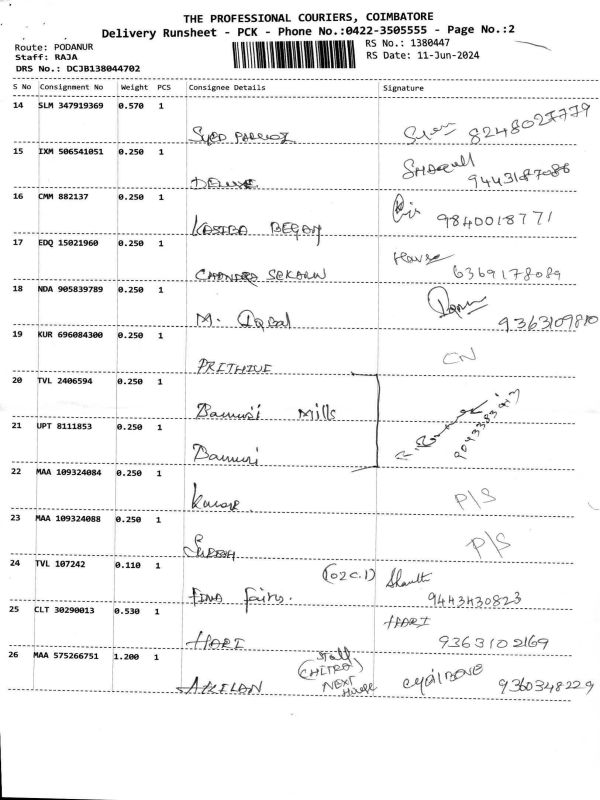 THE PROFESSIONAL COURIERS, COIMBATORE
Delivery Runsheet - PCK - Phone No.:0422-3505555 - Page No.:2
Route: PODANUR RS No.: 1380447
Staff: RAJA RS Date: 11-Jun-2024
DRS No.: DCJB138044702
S No Consignment No Weight PCS Consignee Details Signature
14 SLM 347919369 0.570 1
SYED 8248027779
15 IXM 506541051 0.250 1
DELUXE
16 CMM 882137 0.250 1
KASIBA BEGAM 9840018771
17 EDQ 15021960 0.250 1
CHANDRA SEKARAN 6369178089
18 NDA 905839789 0.250 1
M. Iqbal 9363109810
19 KUR 696084300 0.250 1 CN
PRITHIVE
20 TVL 2406594 0.250 1
Bannari Mills
21 UPT 8111853 0.250 1
Bannari
22 MAA 109324084 0.250 1
Kumar. P/S
23 MAA 109324088 0.250 1
P/S
24 TVL 107242 0.110 1
9443430823
25 CLT 30290013 0.530 1 HARI
HARI 9363102169
26 MAA 575266751 1.200 1
(CHITRA)
NEXT
House
AKILAN 9360348229